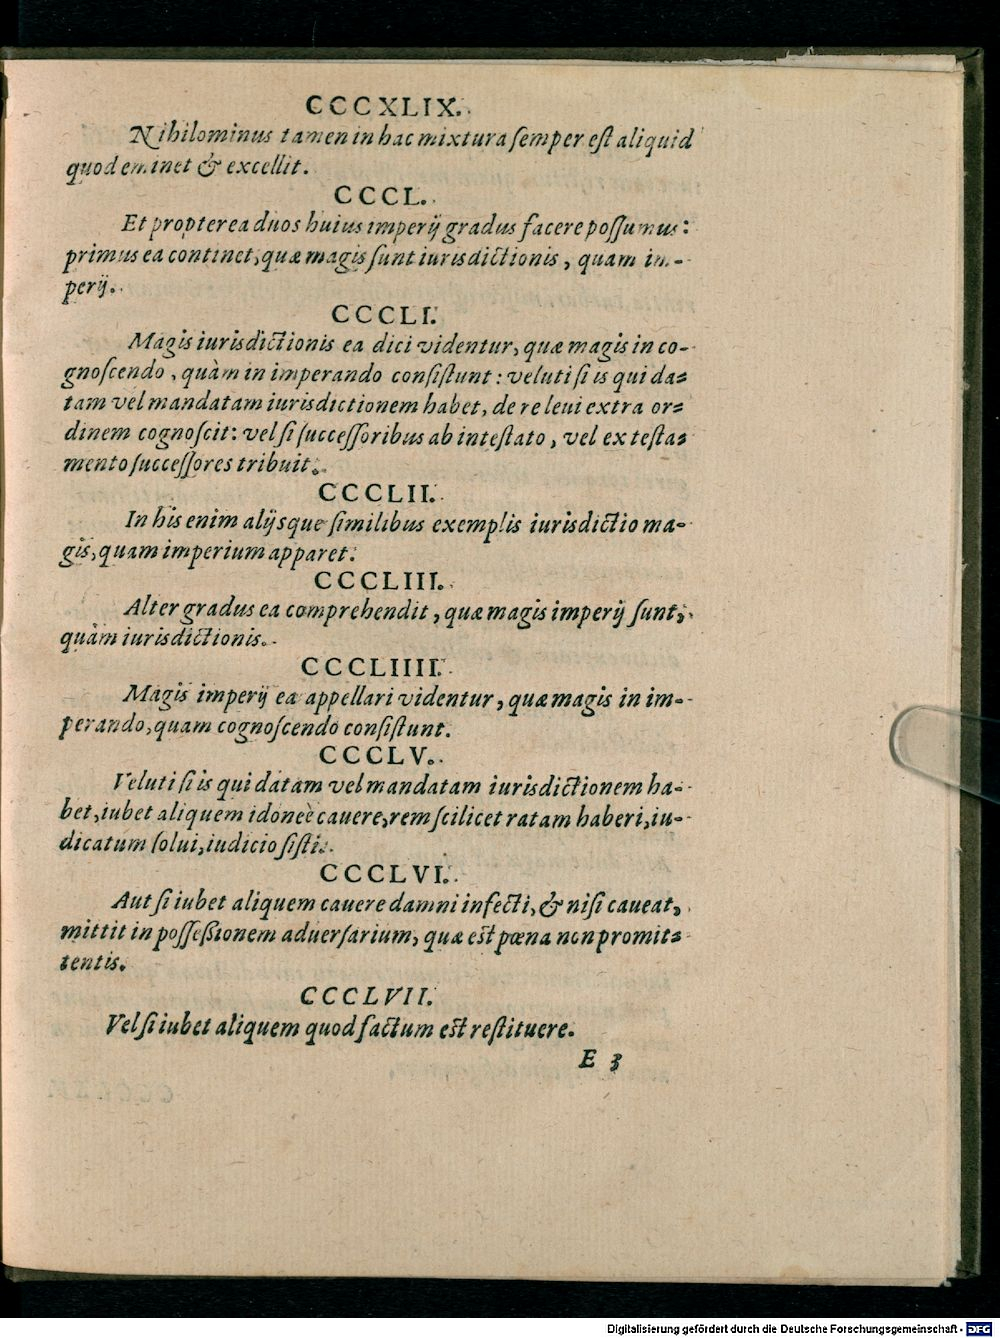 CCCXLIX.
Nihilominus tamen in hac mixtura ſemper eſt aliquid
quod eminet & excellit.
CCCL.
Et propterea duos huius imperij gradus facere poſſumus:
primus ea continet, quæ magis ſunt iurisdictionis, quam im-
perij.
CCCLI.
Magis iurisdictionis ea dici videntur, quæ magis in co-
gnoſcendo, quàm in imperando conſiſtunt: veluti ſi is qui da-
tam vel mandatam iurisdictionem habet, de re leui extra or-
dinem cognoſcit: vel ſi ſucceſſoribus ab inteſtato, vel ex teſta-
mento ſucceſſores tribuit.
CCCLII.
In his enim alijsque ſimilibus exemplis iurisdictio ma-
gis, quam imperium apparet.
CCCLIII.
Alter gradus ea comprehendit, quæ magis imperij ſunt,
quàm iurisdictionis.
CCCLIIII.
Magis imperij ea appellari videntur, quæ magis in im-
perando, quam cognoſcendo conſiſtunt.
CCCLV.
Veluti ſi is qui datam vel mandatam iurisdictionem ha-
bet, iubet aliquem idoneè cauere, rem ſcilicet ratam haberi, iu-
dicatum ſolui, iudicio ſiſti.
CCCLVI.
Aut ſi iubet aliquem cauere damni infecti, & niſi caueat,
mittit in poſſeßionem aduerſarium, quæ eſt pœna non promit-
tentis.
CCCLVII.
Vel ſi iubet aliquem quod factum eſt reſtituere.
E 3
Digitalisierung gefördert durch die Deutsche Forschungsgemeinschaft - DFG